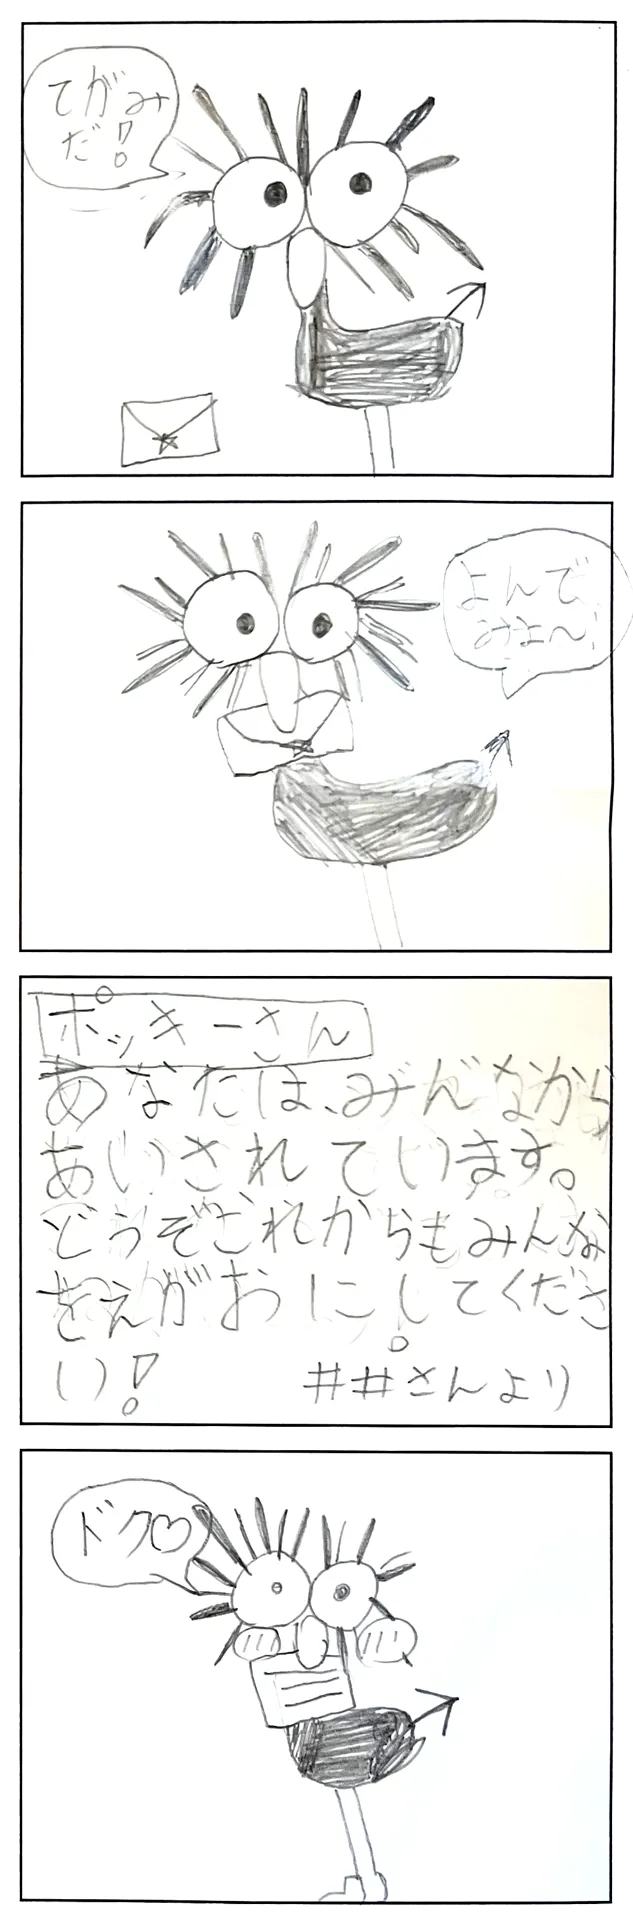 てがみ
だ!
よんで
みよ〜!
ポッキーさん
あなたは、みんなから
あいされています。
どうぞこれからもみんな
をえがおにしてくださ
い!
##さんより
ドク♡